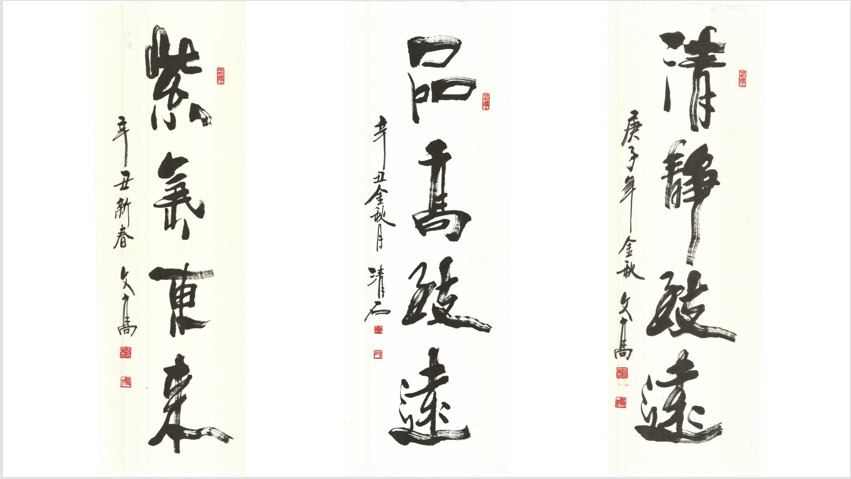 紫氣東來
辛丑新春 文高
品高致遠
辛丑金秋月 清石
清靜致遠
庚子年金秋 文高